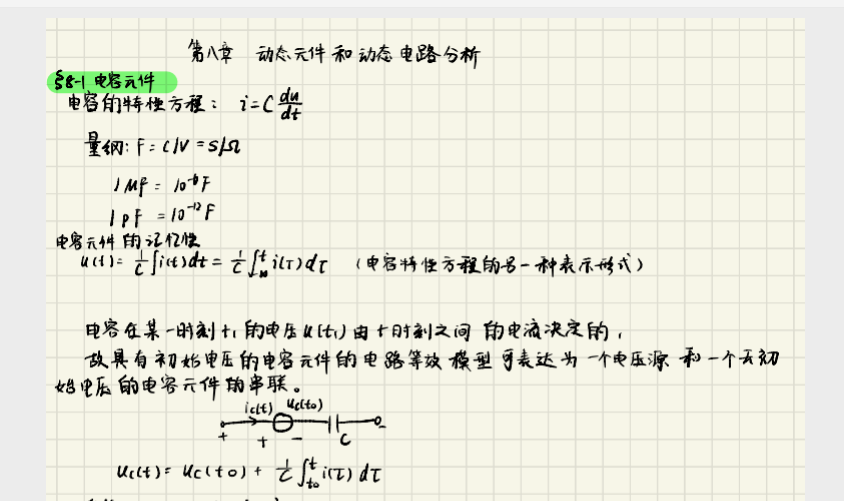 第八章 动态元件和动态电路分析
§8-1 电容元件
电容的特性方程： i=C du/dt
量纲: F = C/V = S/Ω
1 μF = 10⁻⁶F
1 pF = 10⁻¹²F
电容元件的记忆性
u(t)= 1/C ∫i(t)dt = 1/C ∫_{-∞}^{t} i(τ)dτ （电容特性方程的另一种表示形式）
电容在某一时刻t₁的电压u(t₁)由t时刻之间的电流决定的，
故具有初始电压的电容元件的电路等效模型可表达为一个电压源和一个无初
始电压的电容元件的串联。
ic(t) uc(to)
+ + - C -
uc(t)= uc(to) + 1/C ∫_{to}^{t} i(τ) dτ